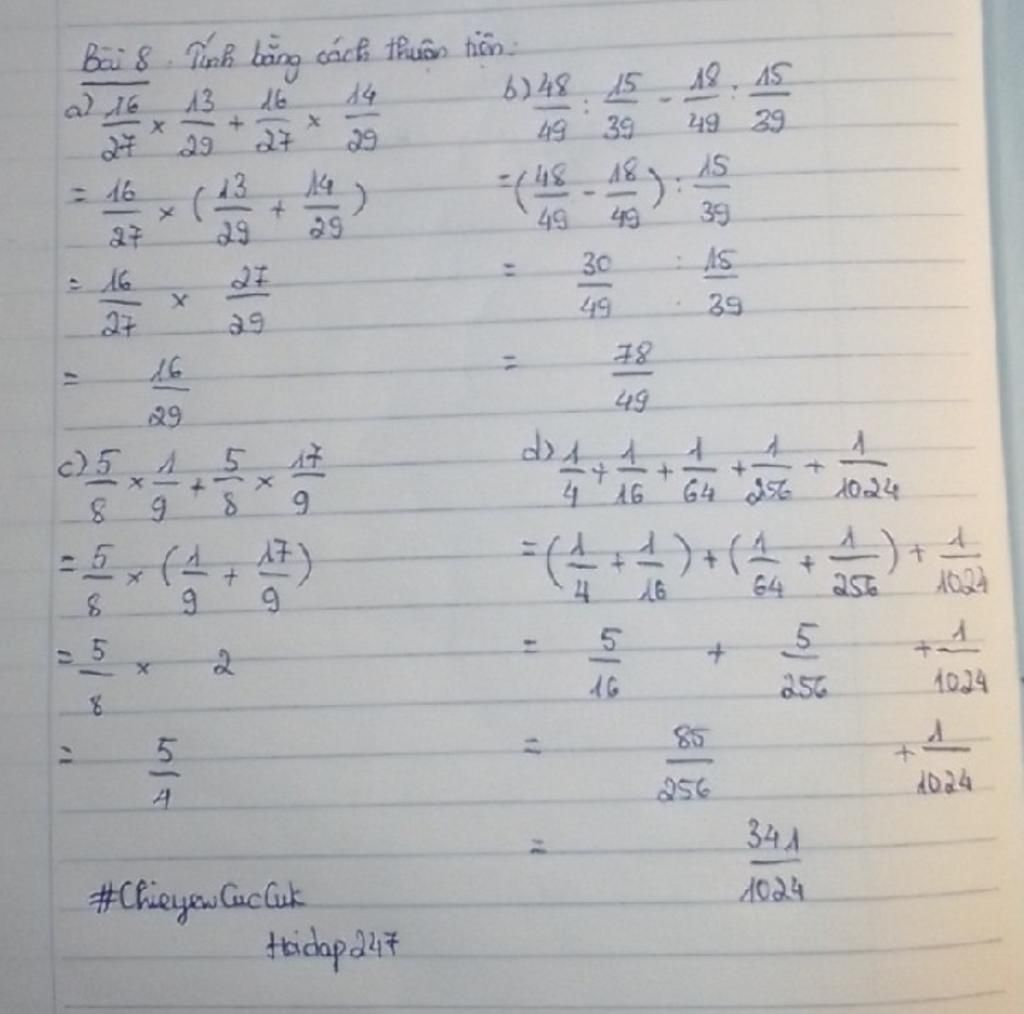 Bài 8. Tính bằng cách thuận tiện:
a) 16/27 × 13/29 + 16/27 × 14/29
= 16/27 × (13/29 + 14/29)
= 16/27 × 27/29
= 16/29
b) 48/49 : 15/39 - 18/49 : 15/39
= (48/49 - 18/49) : 15/39
= 30/49 : 15/39
= 78/49
c) 5/8 × 1/9 + 5/8 × 17/9
= 5/8 × (1/9 + 17/9)
= 5/8 × 2
= 5/4
d) 1/4 + 1/16 + 1/64 + 1/256 + 1/1024
= (1/4 + 1/16) + (1/64 + 1/256) + 1/1024
= 5/16 + 5/256 + 1/1024
= 85/256 + 1/1024
= 341/1024
#ChieyewCucCuk
Hoidap247